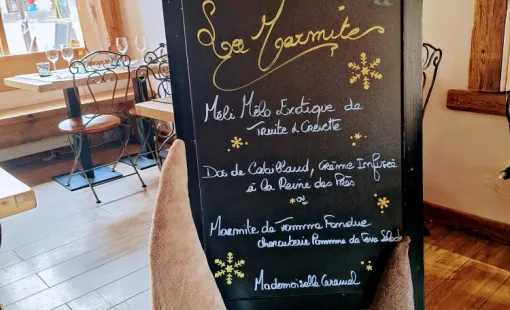 La Marmite
Méli Mélo Exotique de
Truite & Crevette
Dos de Cabillaud, Crème Infusée
à la Reine des Prés
ou
Marmite de Tomme Fondue
charcuterie Pomme de Terre Salade
Mademoiselle Caramel